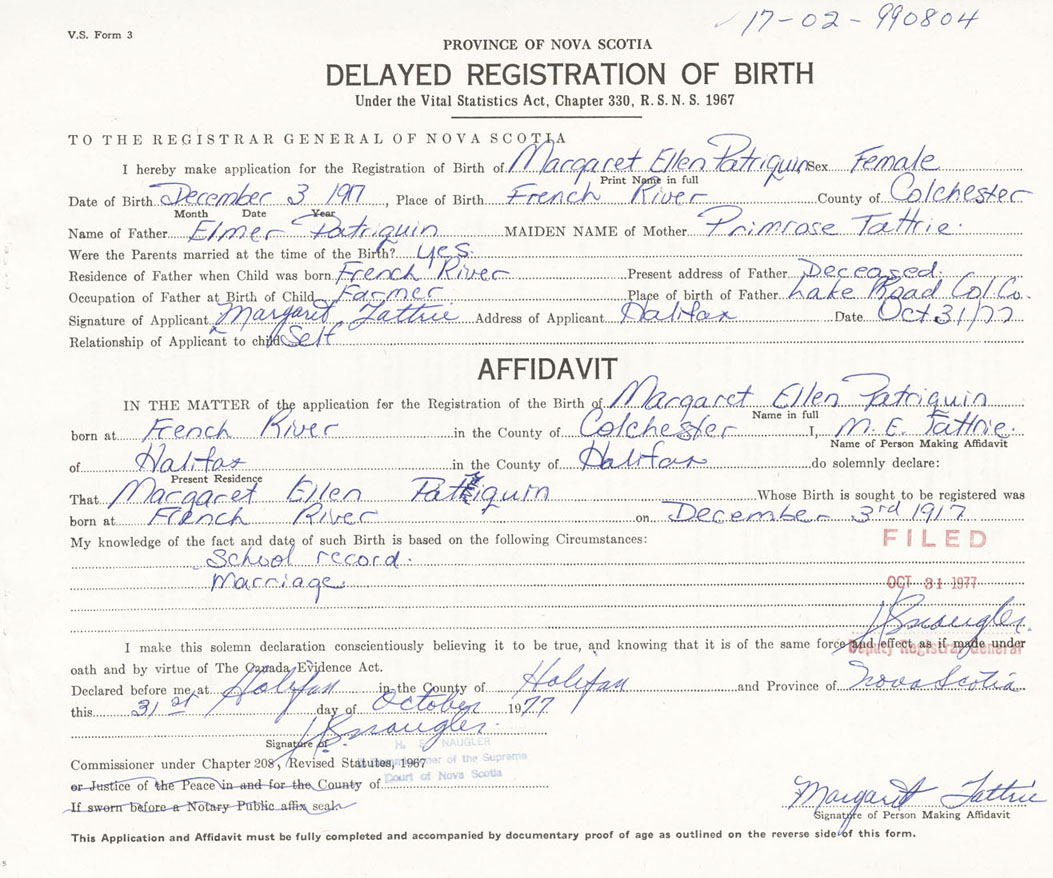 17-02-990804
V.S. Form 3
PROVINCE OF NOVA SCOTIA
DELAYED REGISTRATION OF BIRTH
Under the Vital Statistics Act, Chapter 330, R.S.N.S. 1967
TO THE REGISTRAR GENERAL OF NOVA SCOTIA
I hereby make application for the Registration of Birth of Margaret Ellen Patriquin Sex Female
Print Name in full
Date of Birth December 3 1917, Place of Birth French River County of Colchester
Month Date Year
Name of Father Elmer Patriquin MAIDEN NAME of Mother Primrose Tattrie.
Were the Parents married at the time of the Birth? yes.
Residence of Father when Child was born French River Present address of Father Deceased.
Occupation of Father at Birth of Child Farmer. Place of birth of Father Lake Road Col. Co.
Signature of Applicant Margaret Tattrie Address of Applicant Halifax Date Oct 31/77
Relationship of Applicant to child Self
AFFIDAVIT
IN THE MATTER of the application for the Registration of the Birth of Margaret Ellen Patriquin
Name in full
born at French River in the County of Colchester I, M. E. Tattrie.
Name of Person Making Affidavit
of Halifax in the County of Halifax do solemnly declare:
Present Residence
That Margaret Ellen Patriquin Whose Birth is sought to be registered was
born at French River on December 3rd 1917
My knowledge of the fact and date of such Birth is based on the following Circumstances:
FILED
School record.
Marriage
OCT 31 1977
HENaugler.
I make this solemn declaration conscientiously believing it to be true, and knowing that it is of the same force and effect as if made under
Deputy Registrar General
oath and by virtue of The Canada Evidence Act.
Declared before me at Halifax in the County of Halifax and Province of Nova Scotia
this 31st day of October 1977
HENaugler.
Signature of
H. E. NAUGLER
Commissioner of the Supreme
Court of Nova Scotia
Commissioner under Chapter 208, Revised Statutes, 1967
or Justice of the Peace in and for the County of
If sworn before a Notary Public affix seal
Margaret Tattrie
Signature of Person Making Affidavit
This Application and Affidavit must be fully completed and accompanied by documentary proof of age as outlined on the reverse side of this form.